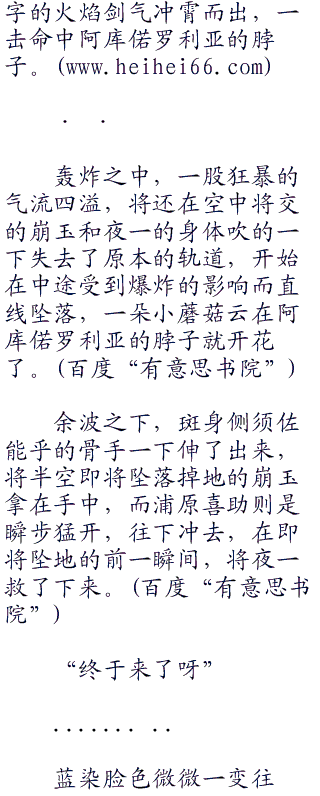 字的火焰剑气冲霄而出，一
击命中阿库偌罗利亚的脖
子。(www.heihei66.com)
. .
轰炸之中，一股狂暴的
气流四溢，将还在空中将交
的崩玉和夜一的身体吹的一
下失去了原本的轨道，开始
在中途受到爆炸的影响而直
线坠落，一朵小蘑菇云在阿
库偌罗利亚的脖子就开花
了。(百度“有意思书院”)
余波之下，斑身侧须佐
能乎的骨手一下伸了出来，
将半空即将坠落掉地的崩玉
拿在手中，而浦原喜助则是
瞬步猛开，往下冲去，在即
将坠地的前一瞬间，将夜一
救了下来。(百度“有意思书
院”)
“终于来了呀”
....... ..
蓝染脸色微微一变往